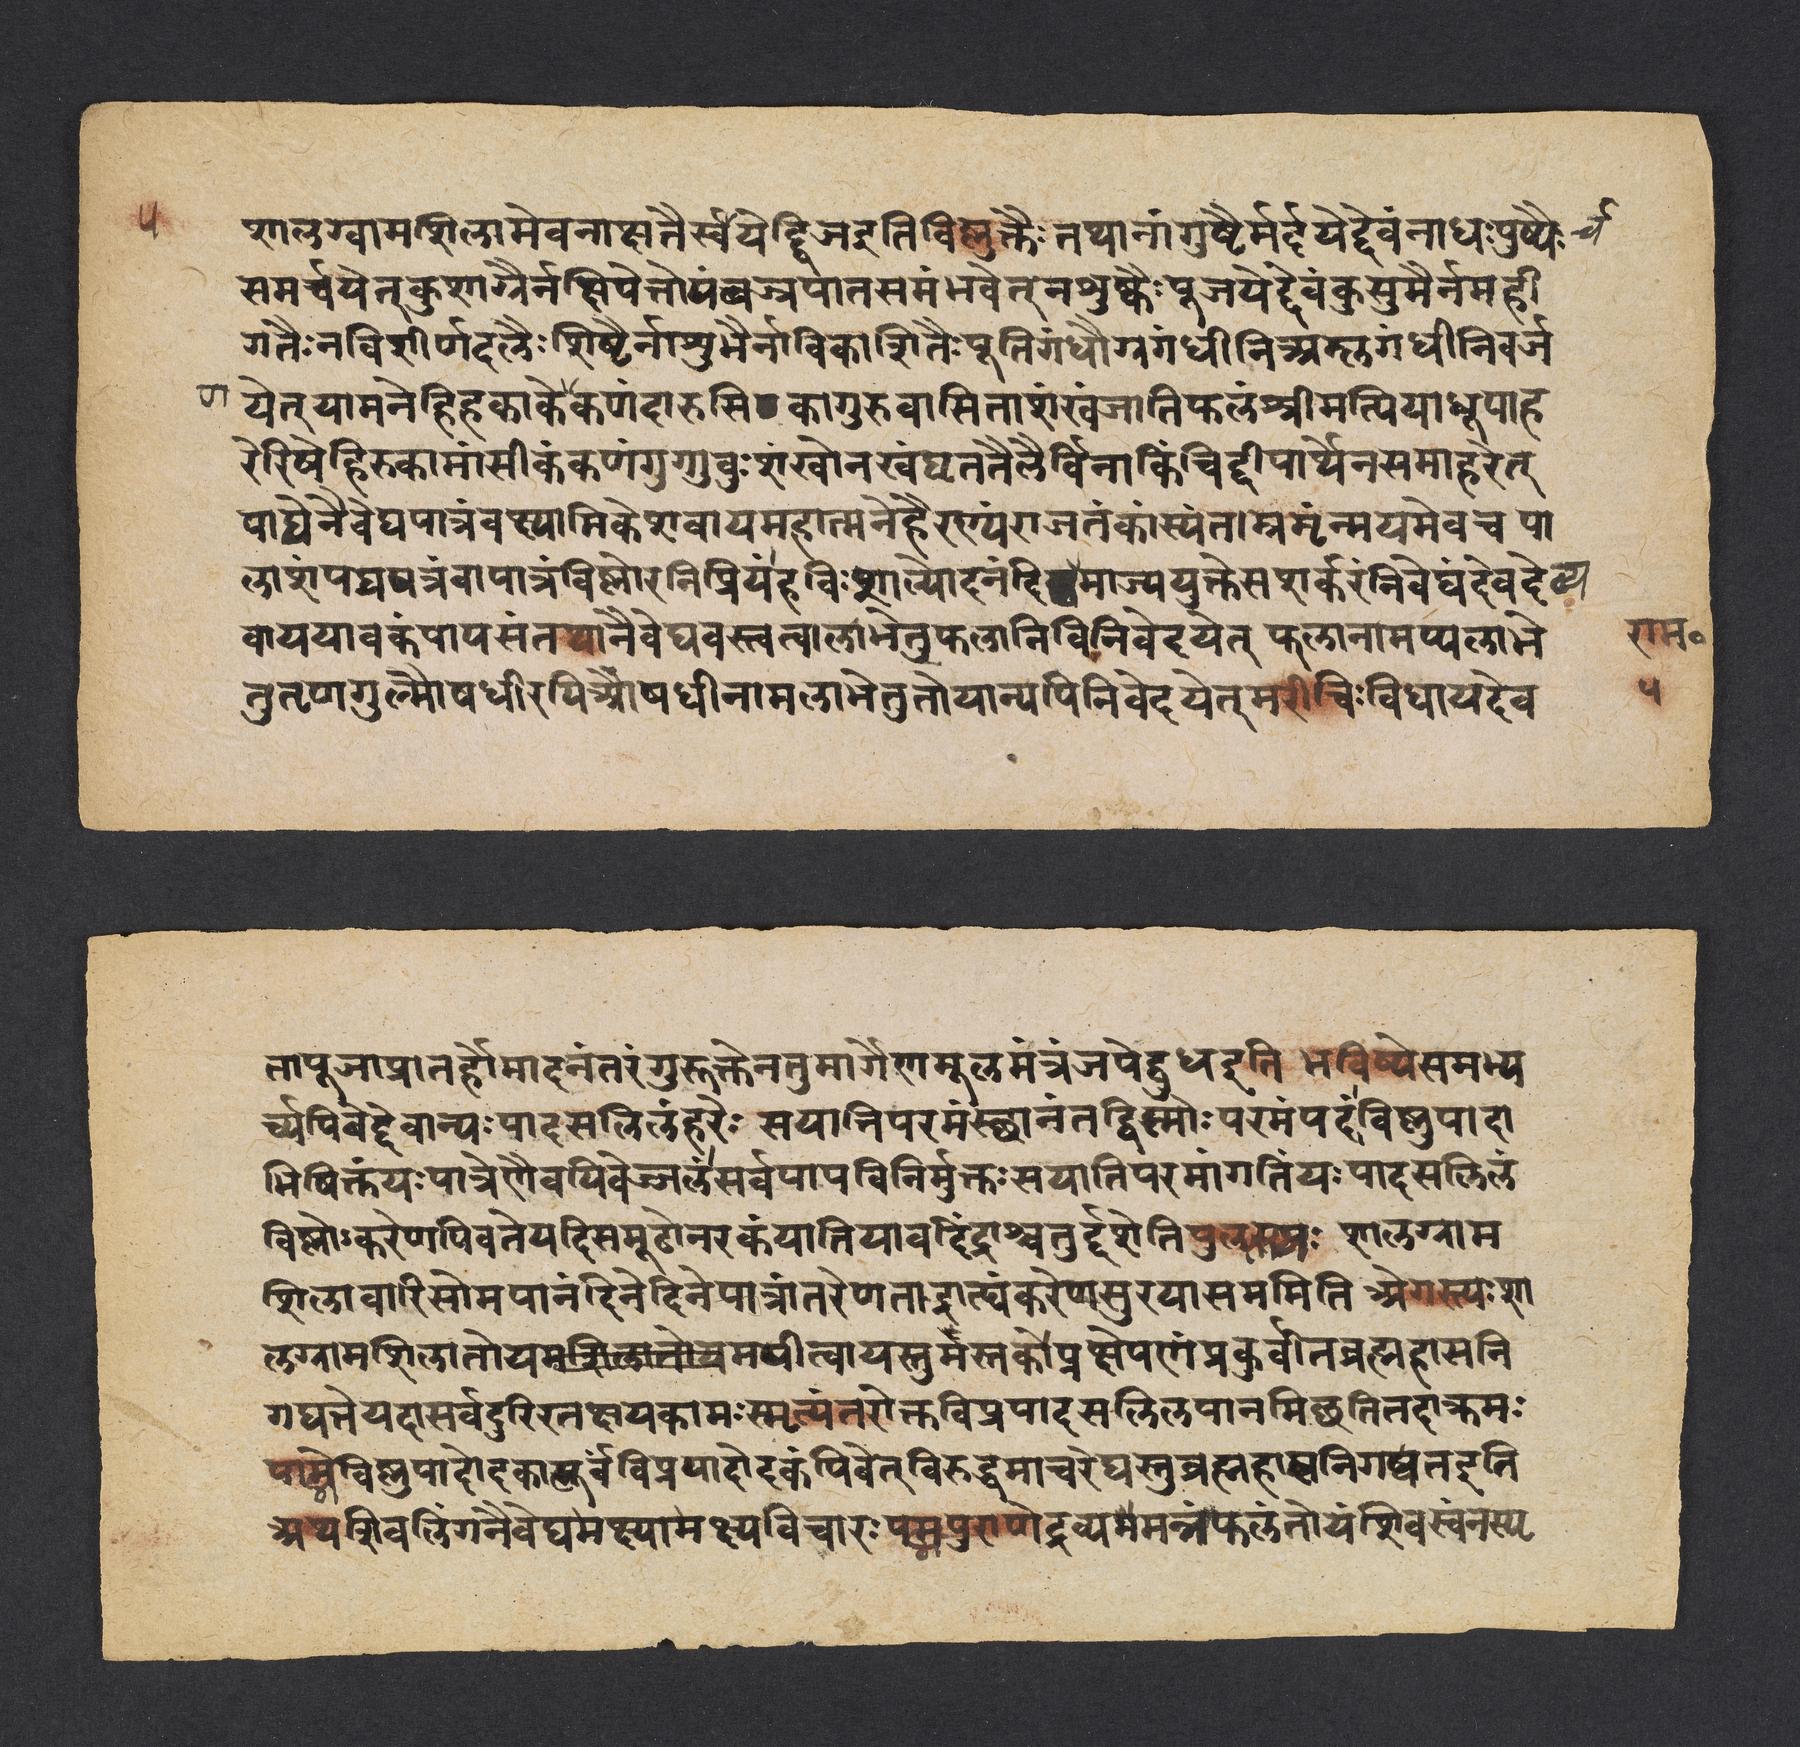 ५
शालग्रामशिलामेवनाक्षतैर्स्चयेद्द्विजइतिविष्णुक्तैः तथानांगुष्टैर्मर्दयेद्देवंनाधःपुष्पैः र्च
समर्च्चयेत्कुशाग्रैर्नक्षिपेत्तोयंवज्रपातसमंभवेत्नशुष्कैःपूजयेद्देवंकुसुमैर्नमही
गतैःनविशीर्णदलैःशिष्टैर्नाशुभैर्नाविकाशितैःपूतिगंधौग्रगंधीनिअम्लगंधीनिवर्ज
ण येत्यामनेहिहकाकेकंणंदारुसि कागुरुवासिताशंखंजातिफलंश्रीमत्पियाधूपाह
रेरिषेहिरुकामांसीकंकणंगुग्गुवुःशंखोनखंघृततैलैर्विनाकिंचिद्दीपार्थेनसमाहरेत्
पाद्येनैवेद्यपात्रंवक्ष्यामिकेशवायमहात्मनेहैरण्यंराजतंकांस्यंताम्रमृंन्मयमेवच पा
लाशंपद्मपत्रंवापात्रंविष्णोरतिप्रियंहविःशाल्योदनंदि माज्ययुक्तेसशर्करंनिवेद्यंदेवदे व्य
वाययावकंपापसंतथानैवेद्यवस्त्वत्वालाभेतुफलानिविनिवेदयेत् फलानामप्यलाभे राम॰
तुतृणगुल्मौषधीरपिऔषधीनामलाभेतुतोयान्यपिनिवेदयेत्मरीचिःविधायदेव ५
तापूजाप्रातर्होमादनंतरंगुरूक्तेनतुमार्गेणमूलमंत्रंजपेद्बुधइति भविष्येसमभ्य
र्च्यपिबेद्देवान्यःपादसलिलंहरेः सयातिपरमंस्थानंतद्विष्मोःपरमंपदंविष्णुपादा
भिषिक्तंयःपात्रेणैवपिवेज्जलंसर्वपापविनिर्मुक्तःसयातिपरमांगतिंयःपादसलिलं
विष्णोःकरेणपिवतेयदिसमूढोनरकंयातियावदिंद्राश्चतुर्द्दशेतिपुलस्त्यः शालग्राम
शिलावारिसोमपानंदिनेदिनेपात्रांतरेणताद्ग्राह्यंकरेणसुरयासममिति अगस्त्यःशा
लग्रामशिलातोयमपीत्वायस्तुमस्तकोप्रक्षेपणंप्रकुर्वीतब्रह्महासनि
गद्यतेयदासर्वदुरिरतक्षयकामःस्मृत्यंतरोक्तविप्रपादसलिलपानमिछतितदाक्रमः
पाद्मेविष्णुपादोदकात्पूर्वंविप्रपादोदकंपिबेत्विरुद्धमाचरेद्यस्तुब्रह्महासनिगद्यतइति
अथशिवलिंगनैवेद्यमक्ष्याभक्ष्यविचारःपद्मपुराणेद्रव्यमंमन्नंफलंतोयंशिवस्वंनस्पृ